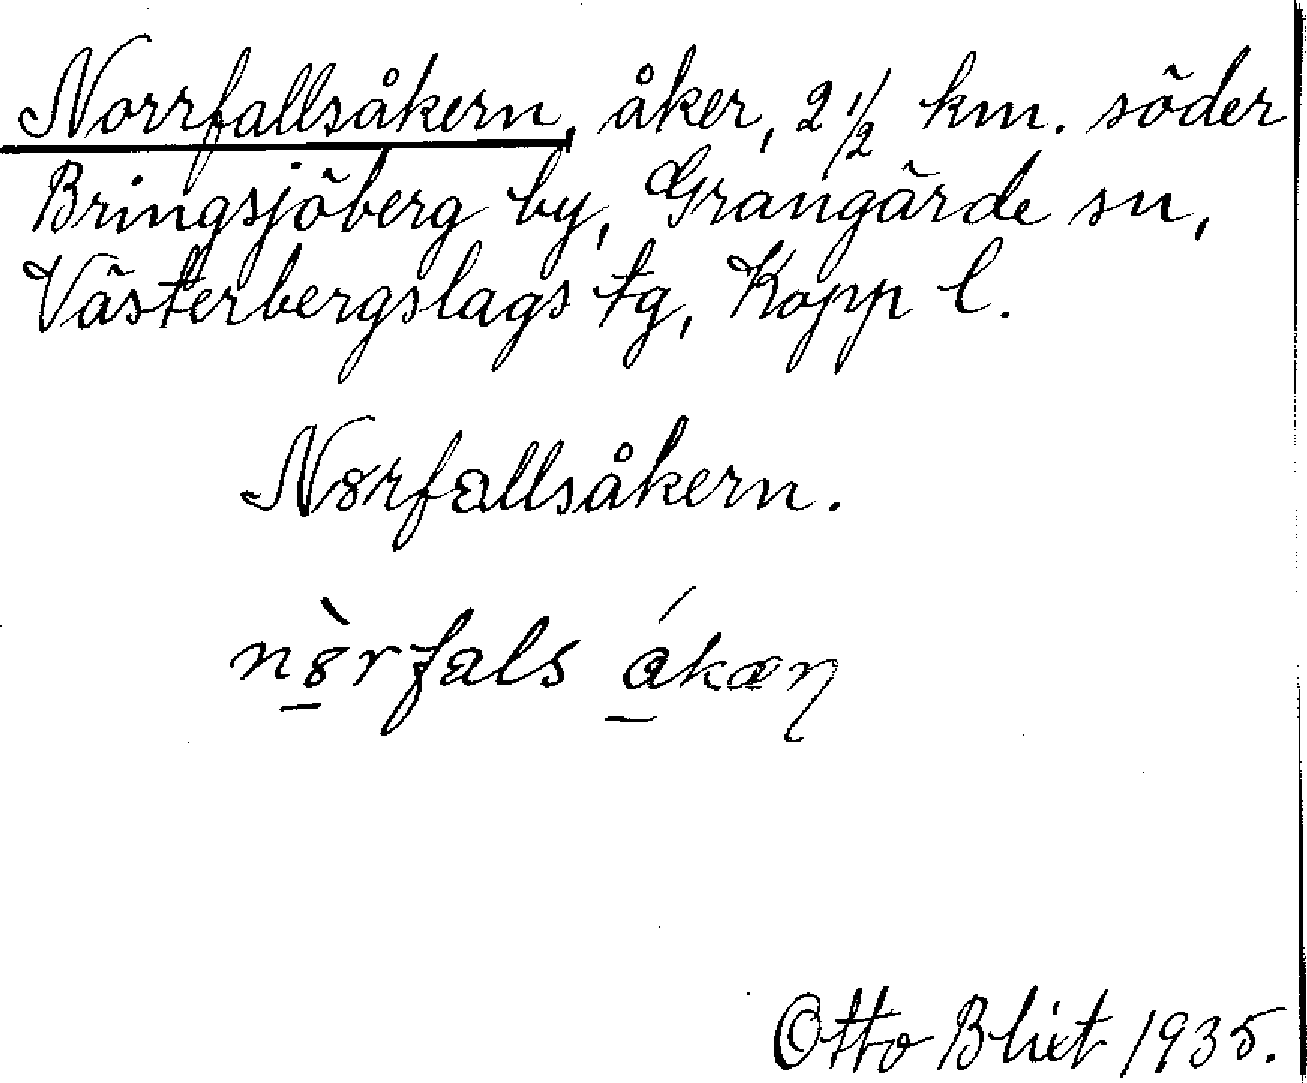 Norrfallsåkern, åker, 2 1/2 km. söder
Bringsjöberg by, Grangärde sn,
Västerbergslags tg, Kopp l.
Nȣrfallsåkern.
nȣ̠̀rfals á̠kæɳ
Otto Blixt 1935.